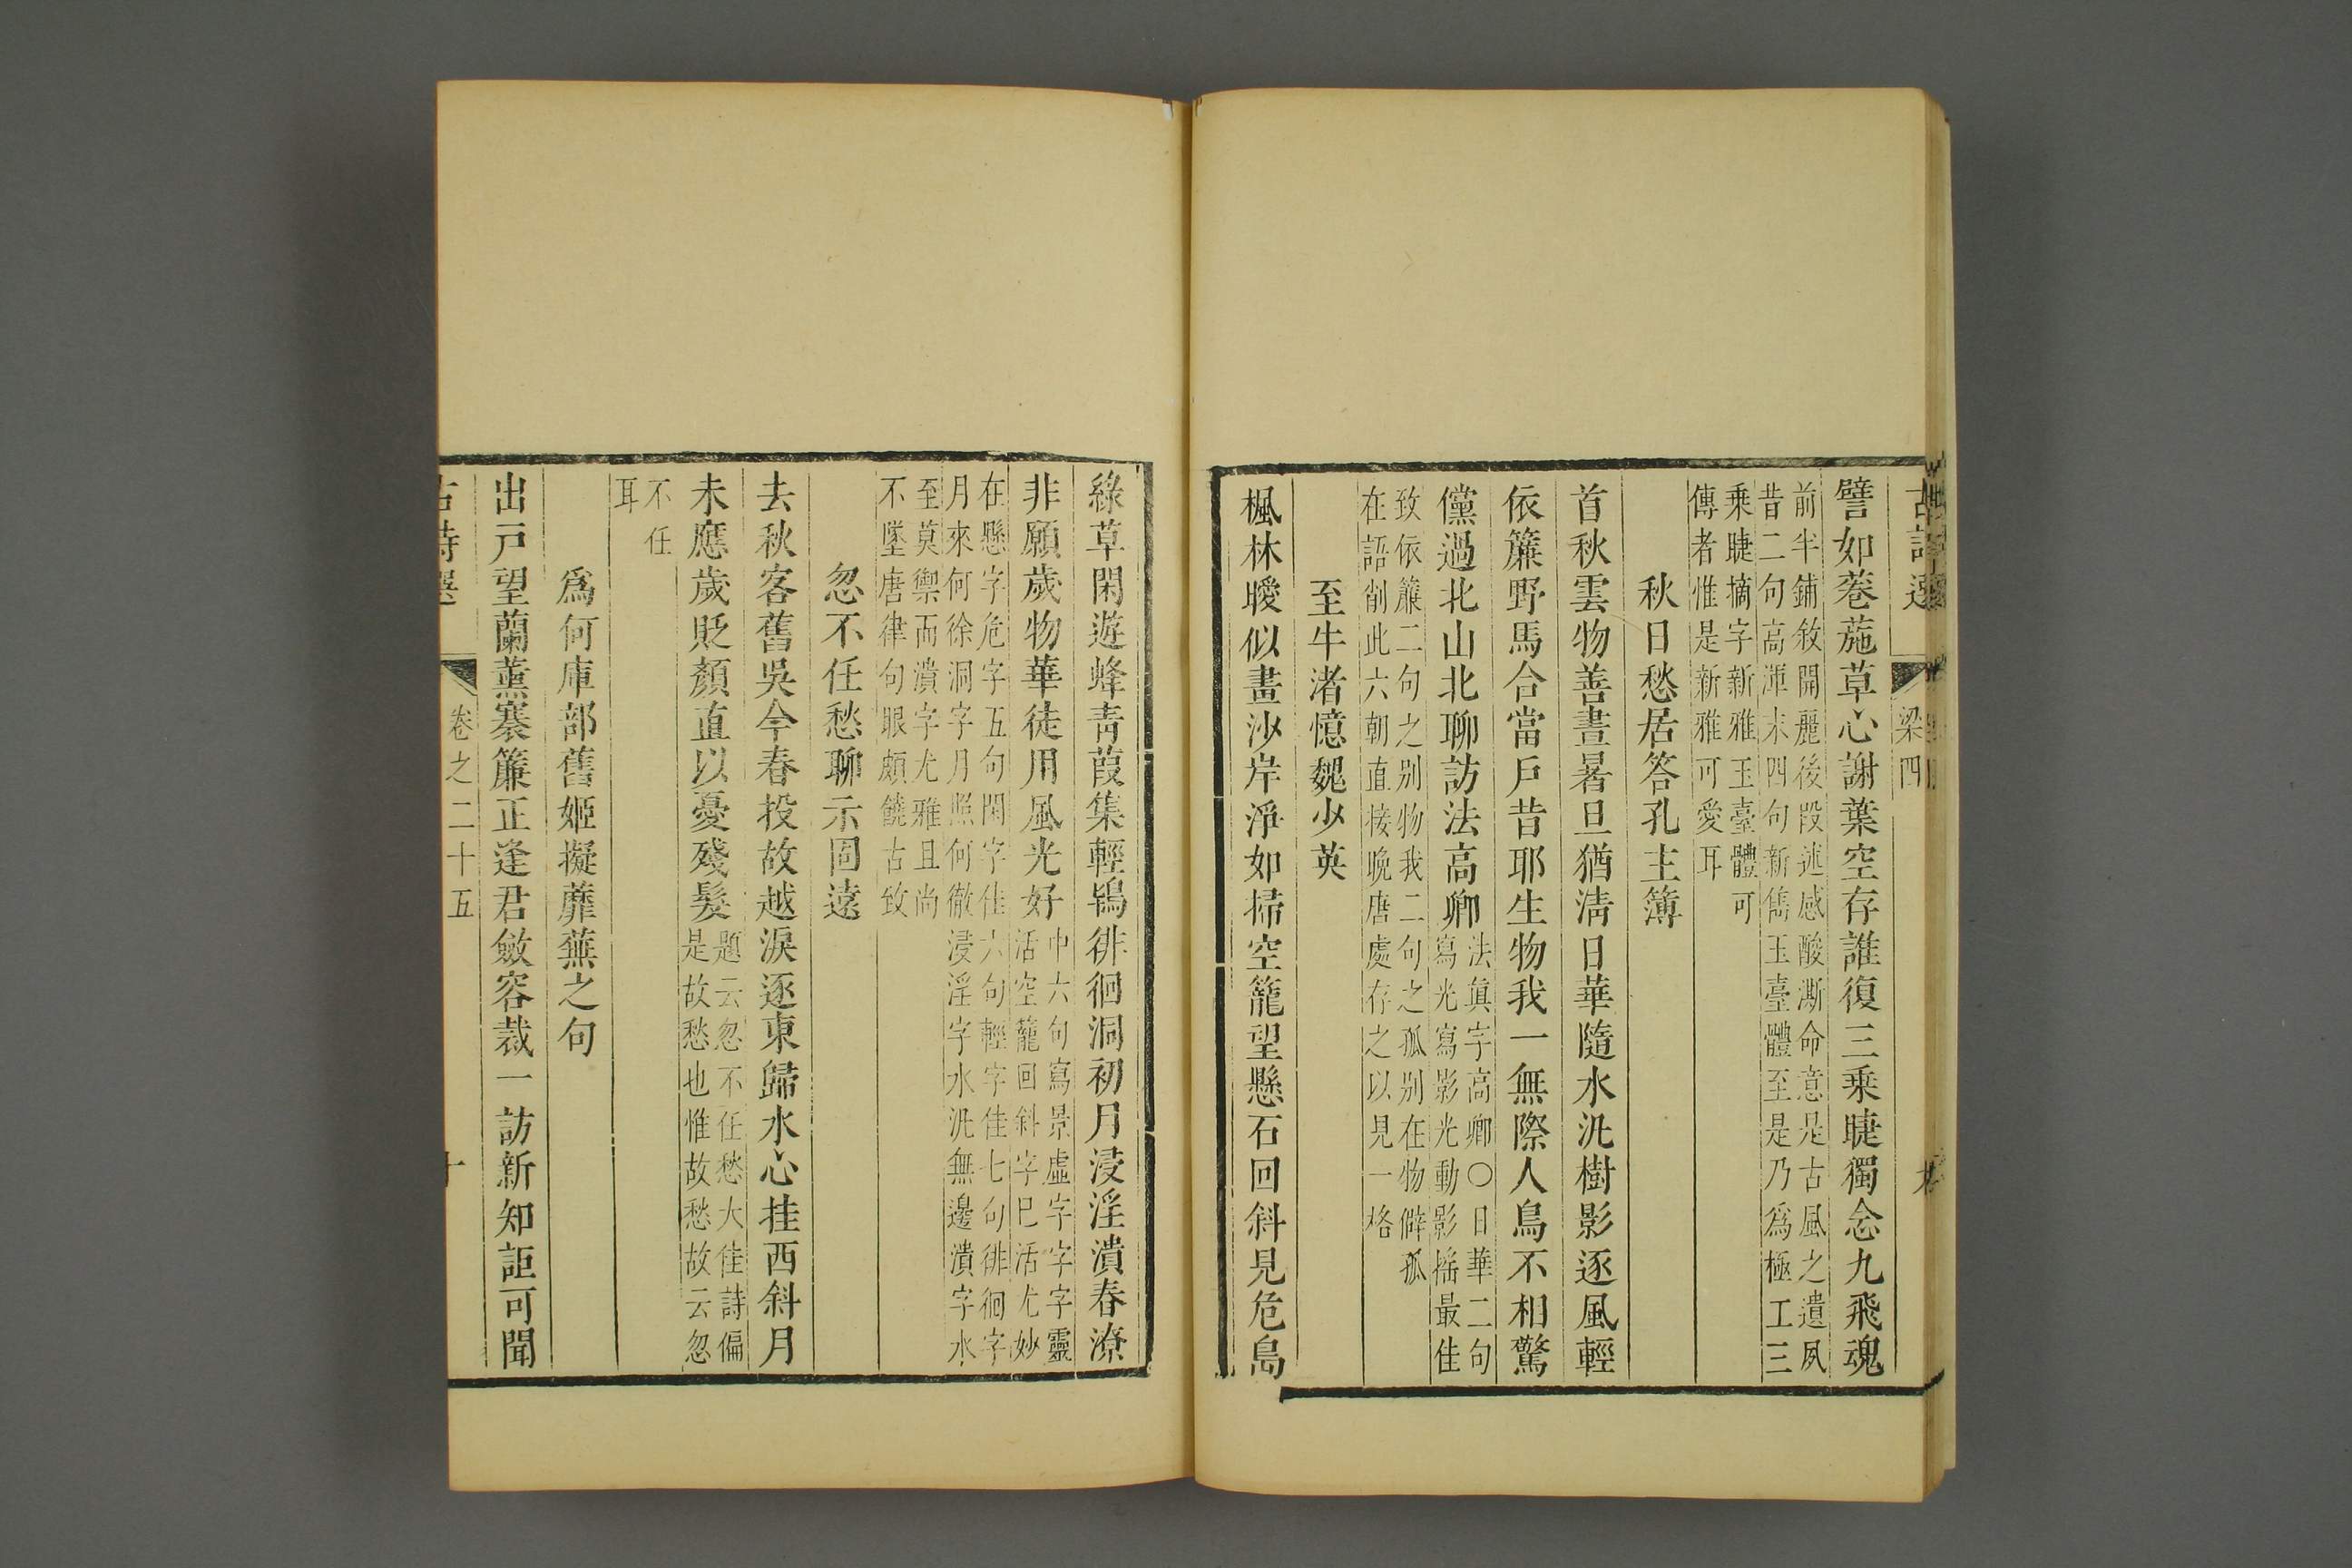 古詩選 梁四
譬如菤葹草心謝葉空存誰復三乗睫獨念九飛魂
前半鋪敘開麗後段述感酸澌命意是古風之遺夙
昔二句高渾末四句新雋玉臺體至是乃爲極工三
乗睫摘字新雅玉臺體可
傳者惟是新雅可愛耳
秋日愁居答孔主簿
首秋雲物善晝暑旦猶淸日華隨水汎樹影逐風輕
依簾野馬合當戶昔耶生物我一無際人鳥不相驚
儻過北山北聊訪法高卿
法眞字高卿〇日華二句
寫光寫影光動影搖最佳
致依簾二句之别物我二句之孤别在物僻孤
在語削此六朝直接晚唐處存之以見一格
至牛渚憶魏少英
楓林曖似畫沙岸淨如掃空籠望懸石回斜見危島
綠草閑遊蜂靑葭集輕鴇徘徊洞初月浸淫潰春潦
非願歲物華徒用風光好
中六句寫景虛字字字靈
活空籠回斜字巳活尤妙
在懸字危字五句閑字佳六句輕字佳七句徘徊字
月來何徐洞字月照何徹浸淫字水汎無邊潰字水
至莫禦而潰字尤雅且尚
不墜唐律句眼頗饒古致
忽不任愁聊示固遠
去秋客舊吳今春投故越淚逐東歸水心挂西斜月
未應歲貶顏直以憂殘髮
題云忽不任愁大佳詩偏
是故愁也惟故愁故云忽
不任
耳
爲何庫部舊姬擬蘼蕪之句
出戸望蘭薰褰簾正逢君斂容裁一訪新知詎可聞
古詩選 卷之二十五 十